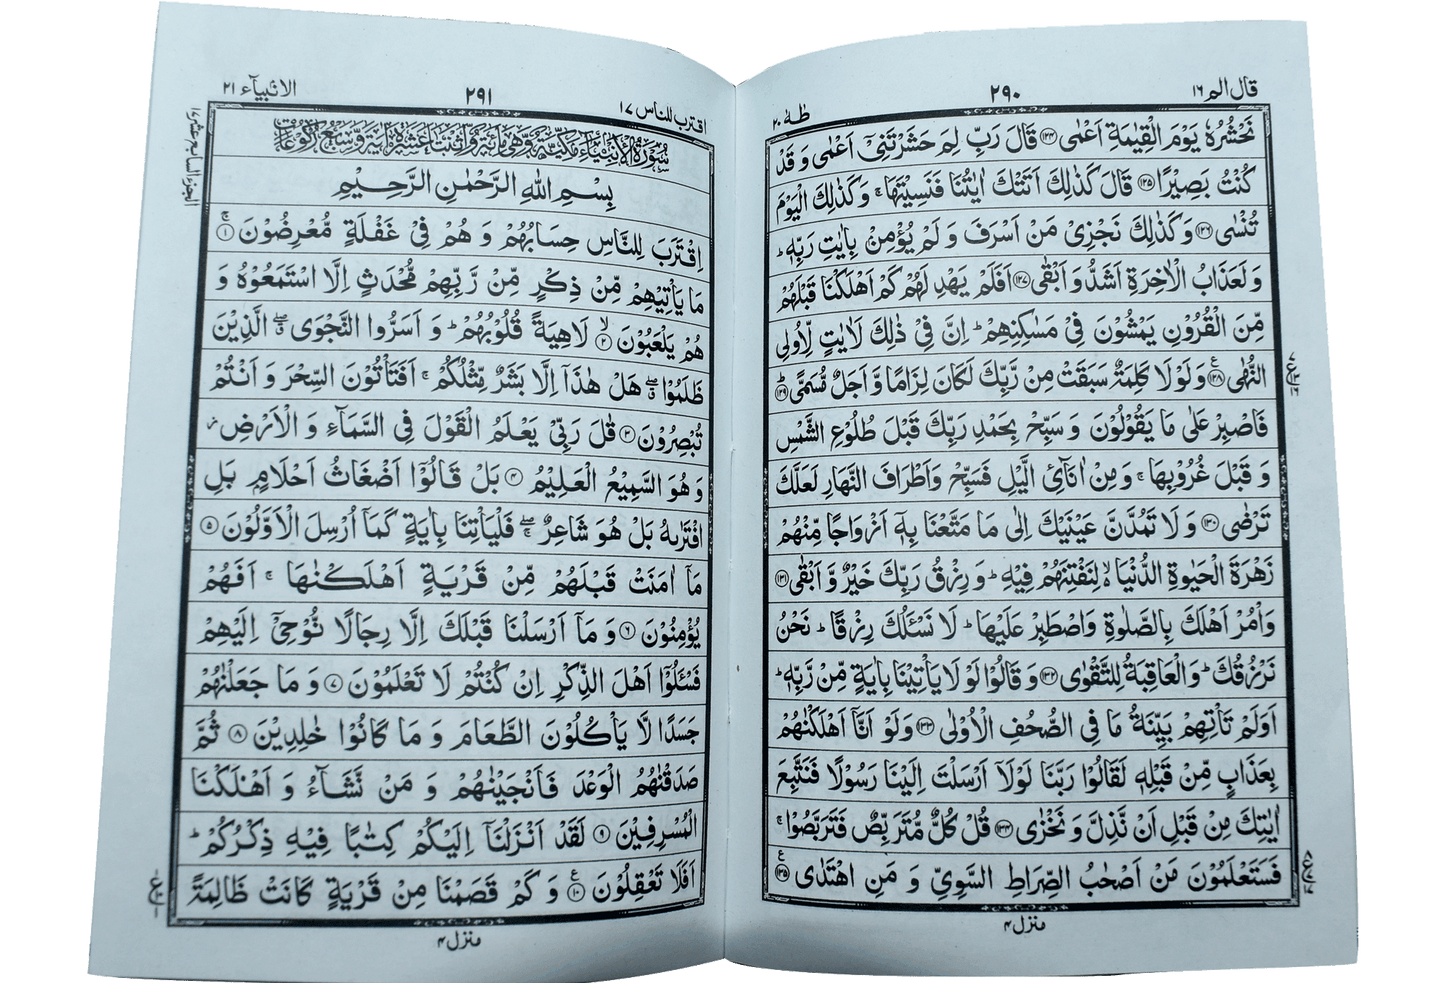 قال الم ١٦
٢٩٠
طٰهٰ ٢٠
نَحْشُرُهٗ يَوْمَ الْقِيٰمَةِ اَعْمٰى ١٢٤ قَالَ رَبِّ لِمَ حَشَرْتَنِىْٓ اَعْمٰى وَ قَدْ
كُنْتُ بَصِيْرًا ١٢٥ قَالَ كَذٰلِكَ اَتَتْكَ اٰيٰتُنَا فَنَسِيْتَهَا ۚ وَ كَذٰلِكَ الْيَوْمَ
تُنْسٰى ١٢٦ وَ كَذٰلِكَ نَجْزِىْ مَنْ اَسْرَفَ وَ لَمْ يُؤْمِنْۢ بِاٰيٰتِ رَبِّهٖ ؕ
وَ لَعَذَابُ الْاٰخِرَةِ اَشَدُّ وَ اَبْقٰى ١٢٧ اَفَلَمْ يَهْدِ لَهُمْ كَمْ اَهْلَكْنَا قَبْلَهُمْ
مِّنَ الْقُرُوْنِ يَمْشُوْنَ فِىْ مَسٰكِنِهِمْ ؕ اِنَّ فِىْ ذٰلِكَ لَاٰيٰتٍ لِّاُولِى
النُّهٰى ١٢٨ وَ لَوْ لَا كَلِمَةٌ سَبَقَتْ مِنْ رَّبِّكَ لَكَانَ لِزَامًا وَّ اَجَلٌ مُّسَمًّى ١٢٩
فَاصْبِرْ عَلٰى مَا يَقُوْلُوْنَ وَ سَبِّحْ بِحَمْدِ رَبِّكَ قَبْلَ طُلُوْعِ الشَّمْسِ
وَ قَبْلَ غُرُوْبِهَا ۚ وَ مِنْ اٰنَآئِ الَّيْلِ فَسَبِّحْ وَ اَطْرَافَ النَّهَارِ لَعَلَّكَ
تَرْضٰى ١٣٠ وَ لَا تَمُدَّنَّ عَيْنَيْكَ اِلٰى مَا مَتَّعْنَا بِهٖٓ اَزْوَاجًا مِّنْهُمْ
زَهْرَةَ الْحَيٰوةِ الدُّنْيَا ۙ لِنَفْتِنَهُمْ فِيْهِ ؕ وَ رِزْقُ رَبِّكَ خَيْرٌ وَّ اَبْقٰى ١٣١
وَ اْمُرْ اَهْلَكَ بِالصَّلٰوةِ وَ اصْطَبِرْ عَلَيْهَا ؕ لَا نَسْئَلُكَ رِزْقًا ؕ نَحْنُ
نَرْزُقُكَ ؕ وَ الْعَاقِبَةُ لِلتَّقْوٰى ١٣٢ وَ قَالُوْا لَوْ لَا يَاْتِيْنَا بِاٰيَةٍ مِّنْ رَّبِّهٖ ؕ
اَوَ لَمْ تَاْتِهِمْ بَيِّنَةُ مَا فِى الصُّحُفِ الْاُوْلٰى ١٣٣ وَ لَوْ اَنَّآ اَهْلَكْنٰهُمْ
بِعَذَابٍ مِّنْ قَبْلِهٖ لَقَالُوْا رَبَّنَا لَوْ لَآ اَرْسَلْتَ اِلَيْنَا رَسُوْلًا فَنَتَّبِعَ
اٰيٰتِكَ مِنْ قَبْلِ اَنْ نَّذِلَّ وَ نَخْزٰى ١٣٤ قُلْ كُلٌّ مُّتَرَبِّصٌ فَتَرَبَّصُوْا ۚ
فَسَتَعْلَمُوْنَ مَنْ اَصْحٰبُ الصِّرَاطِ السَّوِىِّ وَ مَنِ اهْتَدٰى ١٣٥
منزل ٤
اقترب للناس ١٧
٢٩١
الانبيآء ٢١
الجزء السابع عشر
سُوْرَةُ الْاَنْۢبِيَآءِ مَكِّيَّةٌ وَّهِىَ مِائَةٌ وَّاثْنَتَا عَشْرَةَ اٰيَةً وَّسَبْعُ رُكُوْعَاتٍ
بِسْمِ اللهِ الرَّحْمٰنِ الرَّحِيْمِ
اِقْتَرَبَ لِلنَّاسِ حِسَابُهُمْ وَ هُمْ فِىْ غَفْلَةٍ مُّعْرِضُوْنَ ۚ ١
مَا يَاْتِيْهِمْ مِّنْ ذِكْرٍ مِّنْ رَّبِّهِمْ مُّحْدَثٍ اِلَّا اسْتَمَعُوْهُ وَ
هُمْ يَلْعَبُوْنَ ۙ ٢ لَاهِيَةً قُلُوْبُهُمْ ؕ وَ اَسَرُّوا النَّجْوَى ۖ الَّذِيْنَ
ظَلَمُوْا ۖ هَلْ هٰذَآ اِلَّا بَشَرٌ مِّثْلُكُمْ ۚ اَفَتَاْتُوْنَ السِّحْرَ وَ اَنْتُمْ
تُبْصِرُوْنَ ٣ قٰلَ رَبِّىْ يَعْلَمُ الْقَوْلَ فِى السَّمَآءِ وَ الْاَرْضِ ز
وَ هُوَ السَّمِيْعُ الْعَلِيْمُ ٤ بَلْ قَالُوْٓا اَضْغَاثُ اَحْلَامٍۭ بَلِ
افْتَرٰىهُ بَلْ هُوَ شَاعِرٌ ۖ فَلْيَاْتِنَا بِاٰيَةٍ كَمَآ اُرْسِلَ الْاَوَّلُوْنَ ٥
مَآ اٰمَنَتْ قَبْلَهُمْ مِّنْ قَرْيَةٍ اَهْلَكْنٰهَا ۚ اَفَهُمْ
يُؤْمِنُوْنَ ٦ وَ مَآ اَرْسَلْنَا قَبْلَكَ اِلَّا رِجَالًا نُّوْحِىْٓ اِلَيْهِمْ
فَسْئَلُوْٓا اَهْلَ الذِّكْرِ اِنْ كُنْتُمْ لَا تَعْلَمُوْنَ ٧ وَ مَا جَعَلْنٰهُمْ
جَسَدًا لَّا يَاْكُلُوْنَ الطَّعَامَ وَ مَا كَانُوْا خٰلِدِيْنَ ٨ ثُمَّ
صَدَقْنٰهُمُ الْوَعْدَ فَاَنْجَيْنٰهُمْ وَ مَنْ نَّشَآءُ وَ اَهْلَكْنَا
الْمُسْرِفِيْنَ ٩ لَقَدْ اَنْزَلْنَآ اِلَيْكُمْ كِتٰبًا فِيْهِ ذِكْرُكُمْ ؕ
اَفَلَا تَعْقِلُوْنَ ١٠ وَ كَمْ قَصَمْنَا مِنْ قَرْيَةٍ كَانَتْ ظَالِمَةً
منزل ٤